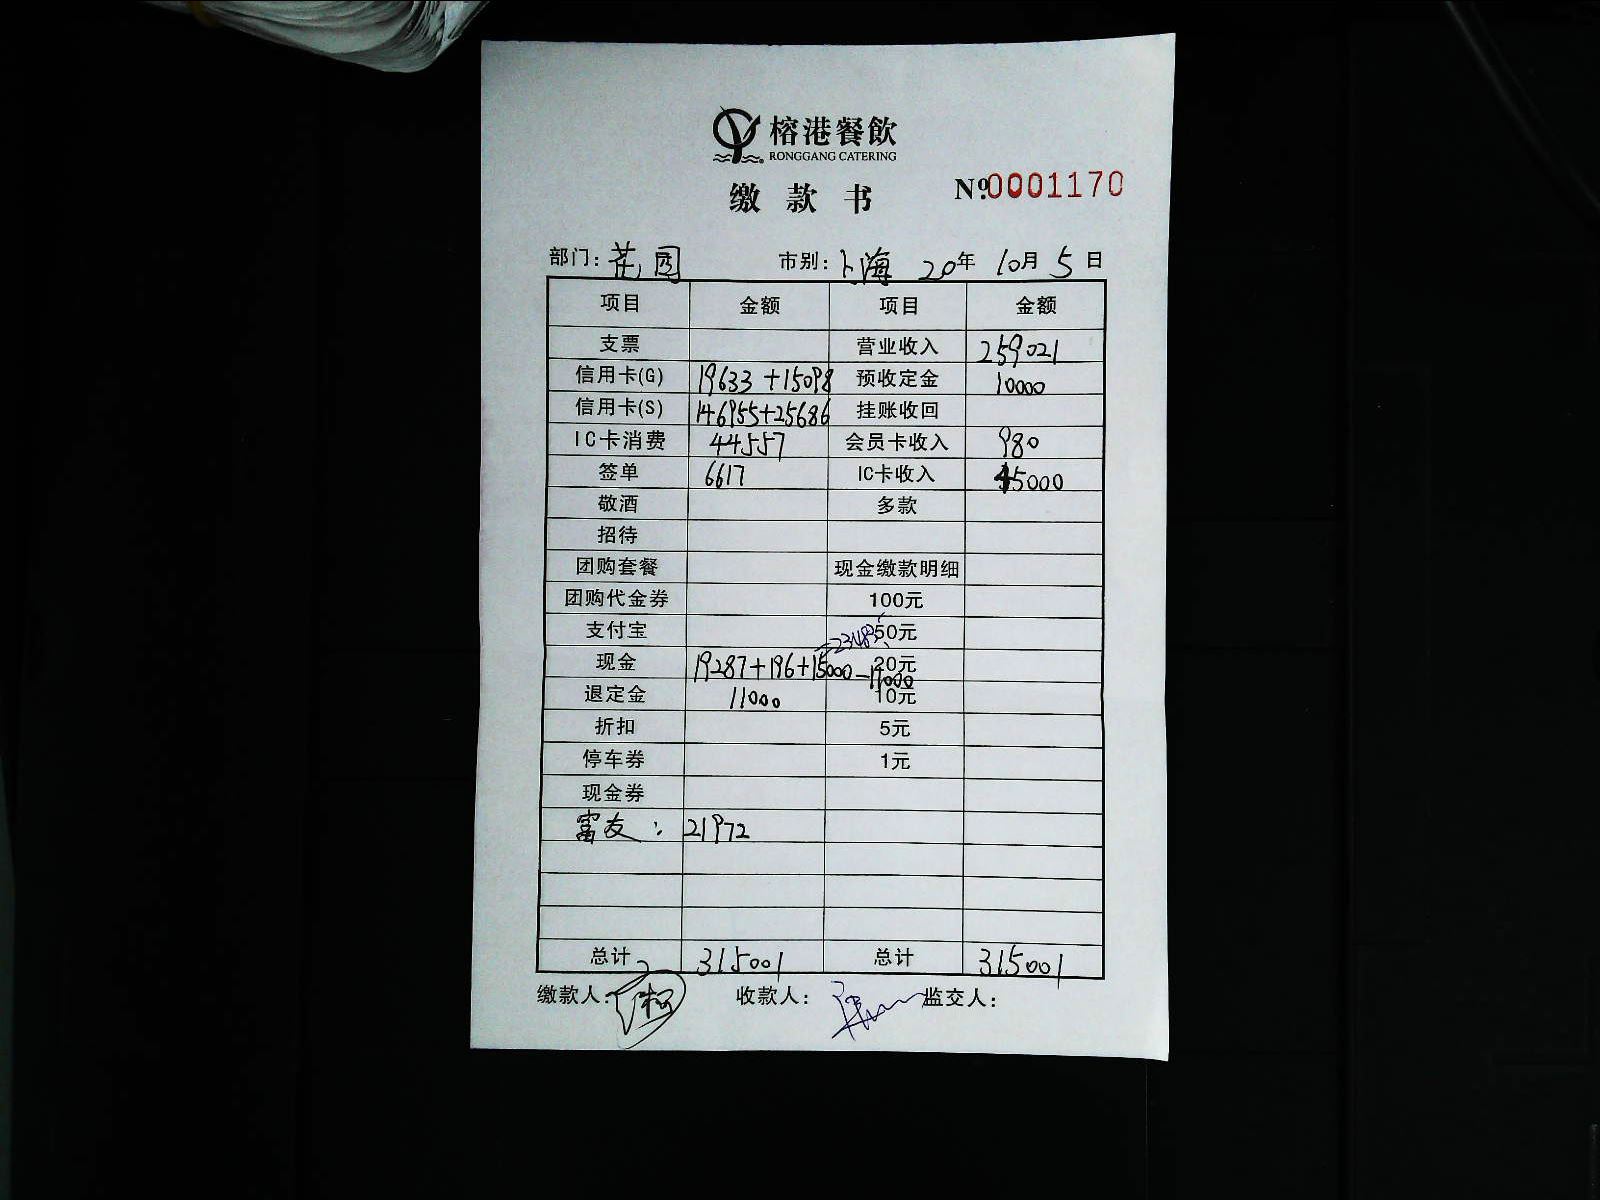 榕港餐飲
RONGGANG CATERING
缴款书 №0001170
部门: 花园 市别: 上海 20年 10月 5日
项目 金额 项目 金额
支票 营业收入 259021
信用卡(G) 19633+15098 预收定金 10000
信用卡(S) 146955+25686 挂账收回
IC卡消费 44557 会员卡收入 980
签单 6617 IC卡收入 45000
敬酒 多款
招待
团购套餐 现金缴款明细
团购代金券 100元
支付宝 50元
现金 19287+196+15000-11000 =23483 20元
退定金 11000 10元
折扣 5元
停车券 1元
现金券
富友: 21972
总计 315001 总计 315001
缴款人: 收款人: 监交人: